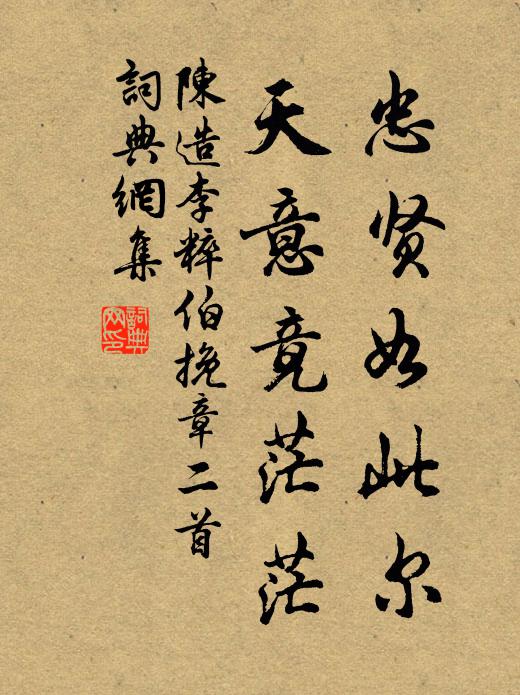 忠贤如此尔
天意竟茫茫
陳造李粹伯挽章二首
詞典網集
詞典网印